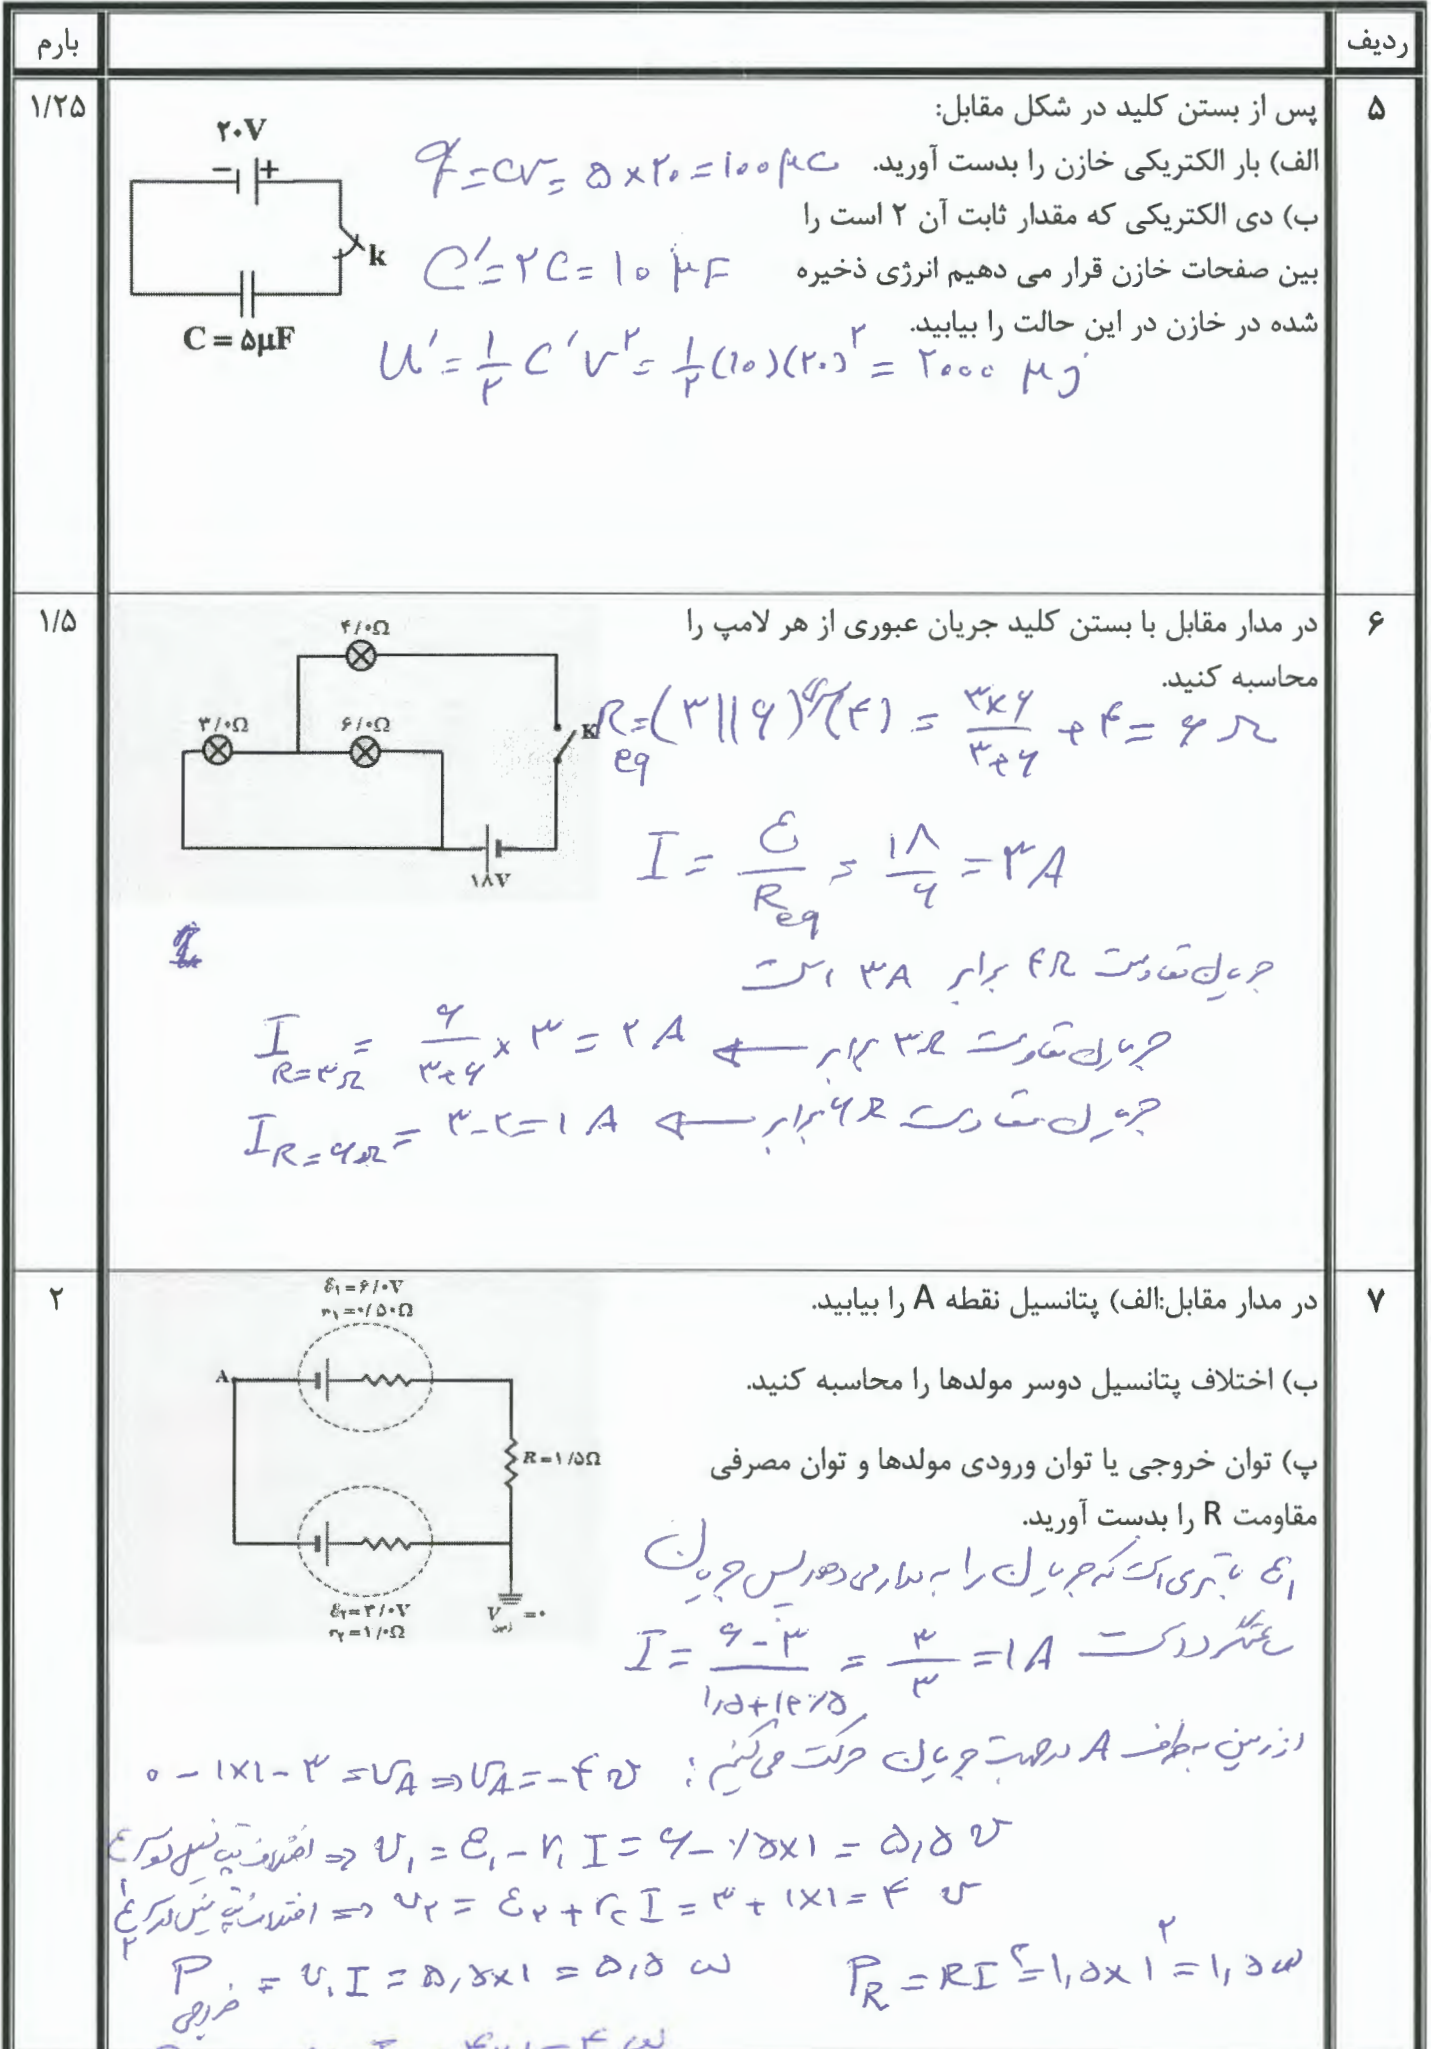 ردیف
بارم
۵
۱/۲۵
پس از بستن کلید در شکل مقابل:
الف) بار الکتریکی خازن را بدست آورید.
q = CV = ۵ × ۲۰ = ۱۰۰ μC
ب) دی الکتریکی که مقدار ثابت آن ۲ است را
بین صفحات خازن قرار می دهیم انرژی ذخیره
C' = ۲C = ۱۰ μF
شده در خازن در این حالت را بیابید.
U' = ۱/۲ C'V² = ۱/۲ (۱۰)(۲۰)² = ۲۰۰۰ μj
۲۰V
− +
k
C = ۵μF
۶
۱/۵
در مدار مقابل با بستن کلید جریان عبوری از هر لامپ را
محاسبه کنید.
۴/۰Ω
۳/۰Ω
۶/۰Ω
K
۱۸V
= ۳×۶/۳+۶ + ۴ = ۶ Ω
I = ε/Req = ۱۸/۶ = ۳A
جریان مقاومت ۴Ω برابر ۳A است
جریان مقاومت ۳Ω برابر ← I R=۳Ω = ۶/۳+۶ × ۳ = ۲ A
جریان مقاومت ۶Ω برابر ← I R=۶Ω = ۳-۲ = ۱ A
۷
۲
در مدار مقابل:الف) پتانسیل نقطه A را بیابید.
ب) اختلاف پتانسیل دوسر مولدها را محاسبه کنید.
پ) توان خروجی یا توان ورودی مولدها و توان مصرفی
مقاومت R را بدست آورید.
ε₁ = ۶/۰V
r₁ = ۰/۵۰Ω
A
R = ۱/۵Ω
ε۲ = ۳/۰V
r۲ = ۱/۰Ω
V زمین = ۰
باتری است که جریان را به مدار می دهد پس جریان
ساعتگرد است I = ۶-۳/۱,۵+۱+۰/۵ = ۳/۳ = ۱A
از زمین به طرف A در جهت جریان حرکت می کنیم : ۰ - ۱×۱ - ۳ = VA ⇒ VA = -۴ v
اختلاف پتانسیل دو سر ε۱ ⇒ V₁ = ε₁ - r₁ I = ۶ - ۰/۵×۱ = ۵,۵ v
اختلاف پتانسیل دو سر ε۲ ⇒ V۲ = ε۲ + r۲ I = ۳ + ۱×۱ = ۴ v
P خروجی = V₁ I = ۵,۵×۱ = ۵,۵ w
P_R = RI² = ۱,۵×۱² = ۱,۵ w